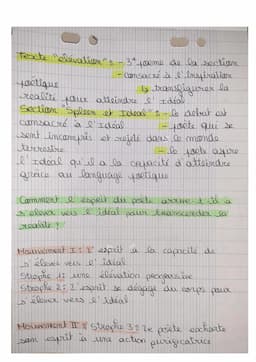 Texte "élévation" : - 3e poème de la section
- consacré à l'inspiration
poétique
↳ transfigurer la
réalité pour atteindre l'Idéal
Section "Spleen et Idéal" : - le début est
consacré à l'Idéal - poète qui se
sent incompris et rejeté dans le monde
terrestre - le poète aspire
l'Idéal qu'il a la capacité d'atteindre
grâce au langage poétique
Comment l'esprit du poète arrive-t-il à
s'élever vers l'idéal pour transcender la
réalité ?
Mouvement I : L'esprit a la capacité de
s'élever vers l'idéal
Strophe 1 : une élévation progressive
Strophe 2 : L'esprit se dégage du corps pour
s'élever vers l'idéal
Mouvement II : Strophe 3 : Le poète exhorte
son esprit à une action purificatrice